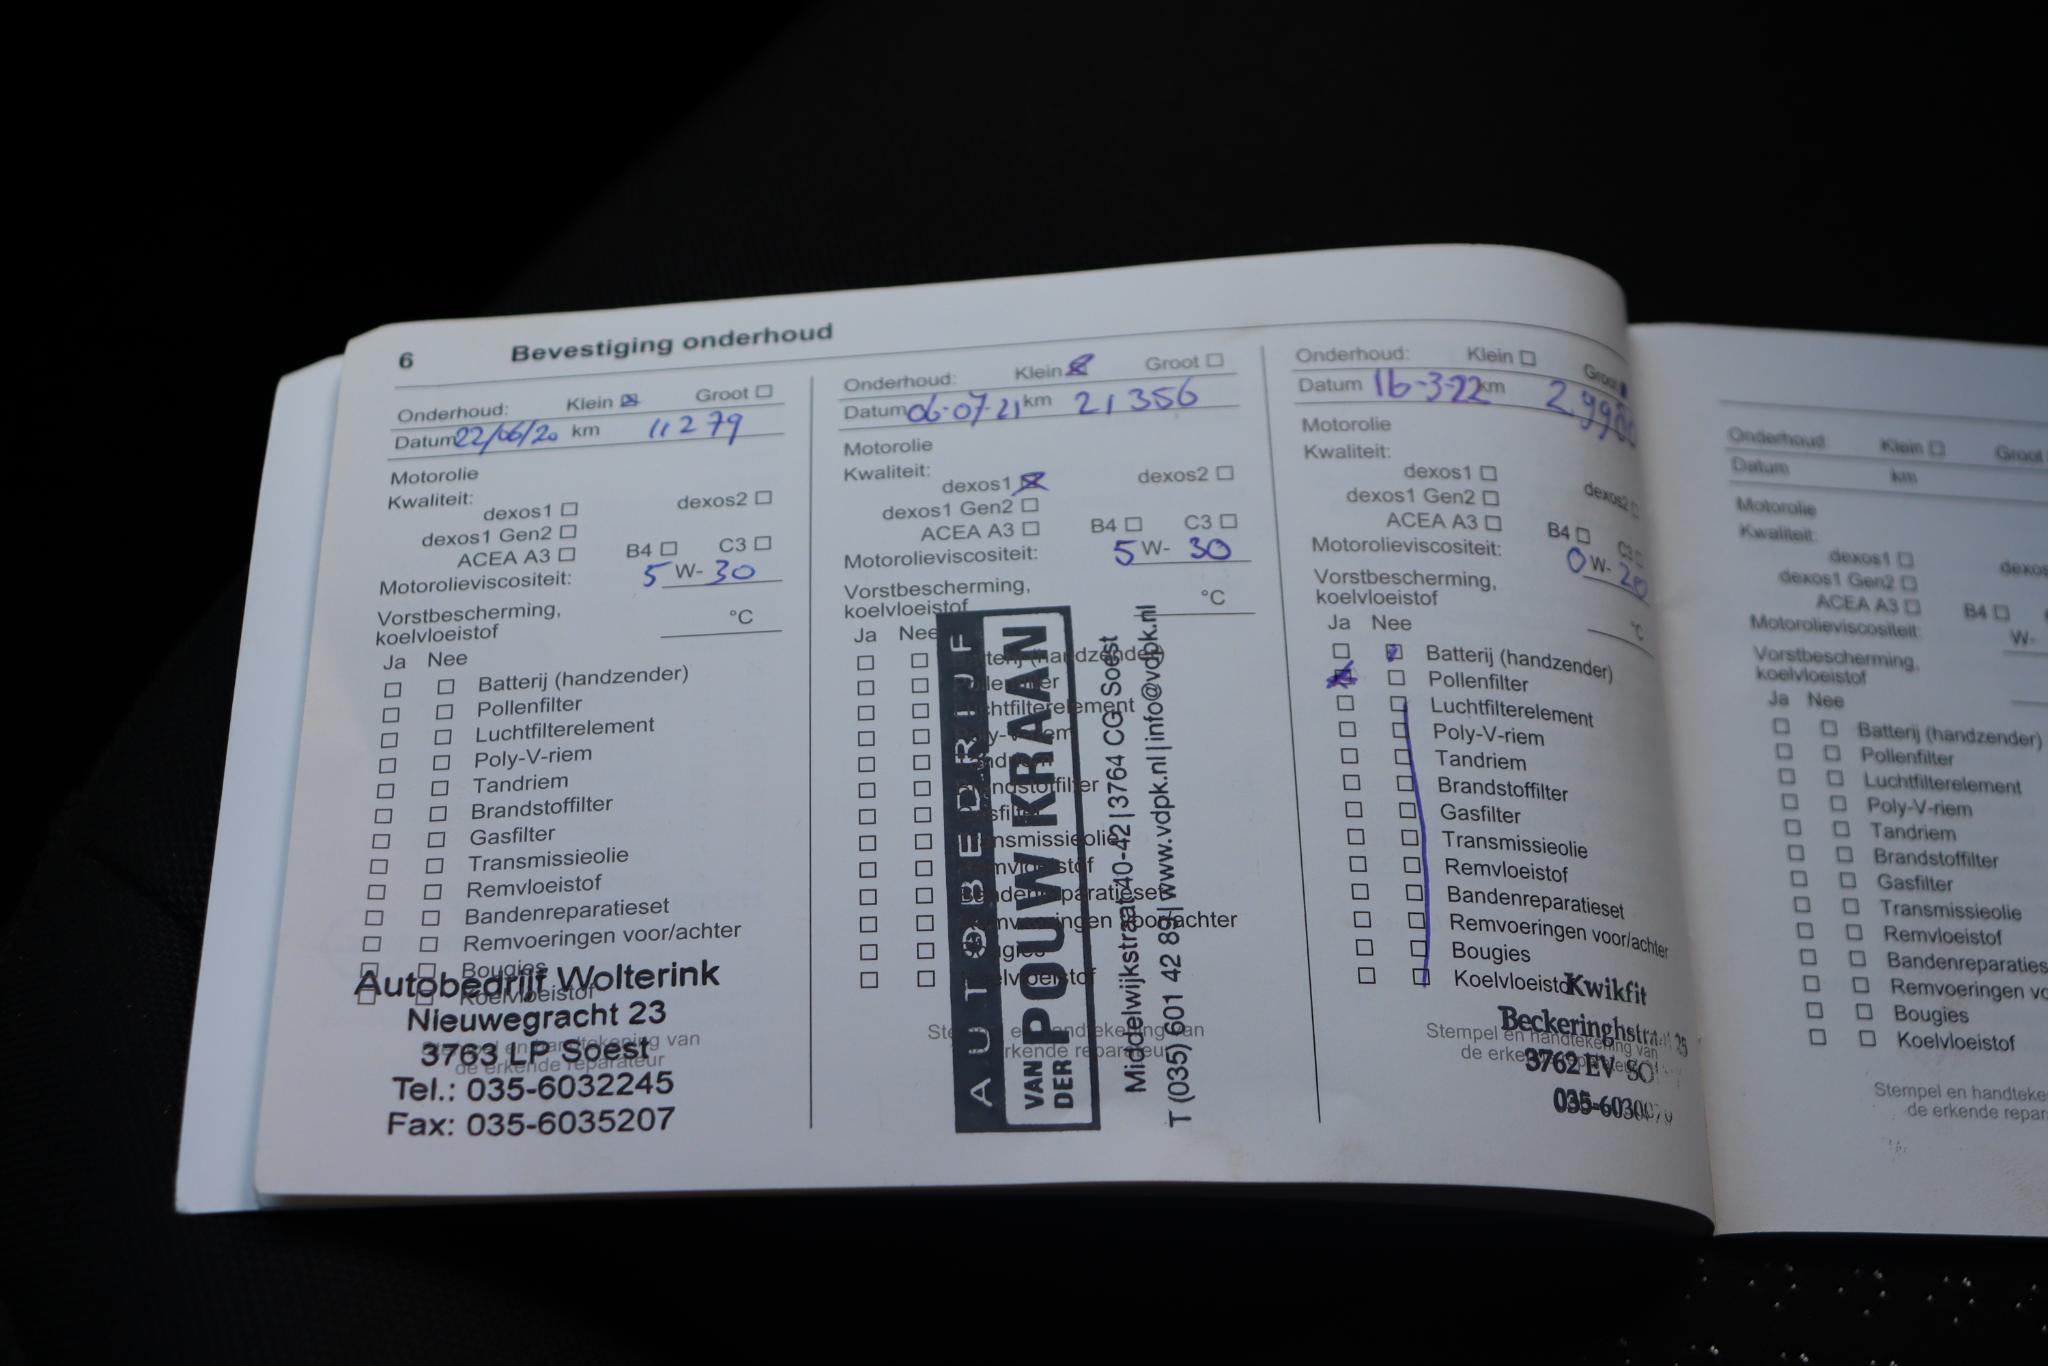 6 Bevestiging onderhoud
Onderhoud: Klein Groot
Datum 22/06/20 km 11279
Motorolie
Kwaliteit:
dexos1 dexos2
dexos1 Gen2
ACEA A3 B4 C3
Motorolieviscositeit: 5 W- 30
Vorstbescherming,
koelvloeistof °C
Ja Nee
Batterij (handzender)
Pollenfilter
Luchtfilterelement
Poly-V-riem
Tandriem
Brandstoffilter
Gasfilter
Transmissieolie
Remvloeistof
Bandenreparatieset
Remvoeringen voor/achter
Bougies
Koelvloeistof
Stempel en handtekening van
de erkende reparateur
Autobedrijf Wolterink
Nieuwegracht 23
3763 LP Soest
Tel.: 035-6032245
Fax: 035-6035207
Onderhoud: Klein Groot
Datum 06-07-21 km 21356
Motorolie
Kwaliteit:
dexos1 dexos2
dexos1 Gen2
ACEA A3 B4 C3
Motorolieviscositeit: 5 W- 30
Vorstbescherming,
koelvloeistof °C
Ja Nee
Batterij (handzender)
Pollenfilter
Luchtfilterelement
Poly-V-riem
Tandriem
Brandstoffilter
Gasfilter
Transmissieolie
Remvloeistof
Bandenreparatieset
Remvoeringen voor/achter
Bougies
Koelvloeistof
Stempel en handtekening van
de erkende reparateur
AUTOBEDRIJF
VAN DER POUW KRAAN
Middelwijkstraat 40-42 | 3764 CG Soest
T (035) 601 42 89 | www.vdpk.nl | info@vdpk.nl
Onderhoud: Klein Groot
Datum 16-3-22 km 2998
Motorolie
Kwaliteit:
dexos1 dexos2
dexos1 Gen2
ACEA A3 B4 C3
Motorolieviscositeit: 0 W- 20
Vorstbescherming,
koelvloeistof °C
Ja Nee
Batterij (handzender)
Pollenfilter
Luchtfilterelement
Poly-V-riem
Tandriem
Brandstoffilter
Gasfilter
Transmissieolie
Remvloeistof
Bandenreparatieset
Remvoeringen voor/achter
Bougies
Koelvloeistof
Stempel en handtekening van
de erkende reparateur
Kwikfit
Beckeringhstraat 25
3762 EV SO
035-6030079
Onderhoud: Klein Groot
Datum km
Motorolie
Kwaliteit:
dexos1 dexos
dexos1 Gen2
ACEA A3 B4
Motorolieviscositeit: W-
Vorstbescherming,
koelvloeistof
Ja Nee
Batterij (handzender)
Pollenfilter
Luchtfilterelement
Poly-V-riem
Tandriem
Brandstoffilter
Gasfilter
Transmissieolie
Remvloeistof
Bandenreparaties
Remvoeringen vo
Bougies
Koelvloeistof
Stempel en handteke
de erkende repar